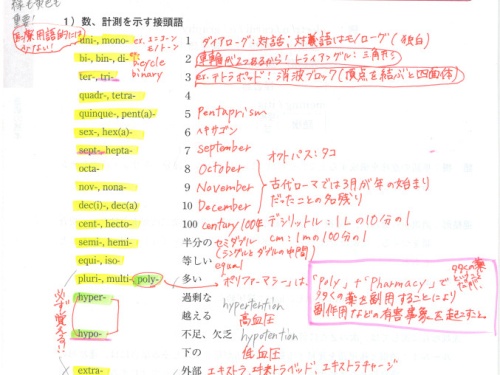 重要!
医療用語的には
1）数、計測を示す接頭語
uni-, mono- ex. ユニコーン モノトーン 1 ダイアローグ:対話;対義語はモノローグ(独白)
bi-, bin-, di- bicycle binary 2 車輪が2つあるから! トライアングル:三角形
ter-, tri- 3 ex. テトラポッド:消波ブロック(頂点を結ぶと四面体)
quadr-, tetra- 4
quinque-, pent(a)- 5 Pentaprism
sex-, hex(a)- 6 ヘキサゴン
sept-, hepta- 7 September
octa- 8 October オクトパス:タコ
nov-, nona- 9 November 古代ローマでは3月が年の始まり
dec(i)-, dec(a) 10 December だったことの名残り
cent-, hecto- 100 century 100年 デシリットル:1Lの10分の1
semi-, hemi- 半分の セミダブル cm:1mの100分の1
(シングルとダブルの中間)
equi-, iso- 等しい equal
pluri-, multi- poly- 多い "ポリファーマシー"は、
「Poly」+「Pharmacy」で
多くの薬を副用することにより
副作用などの有害事象を起こすこと。
必ず覚える!!
hyper- 過剰な hypertention
越える 高血圧
hypo- 不足、欠乏 hypotention
下の 低血圧
extra- 外部 エキストラ、エキストラベッド、エキストラチャージ